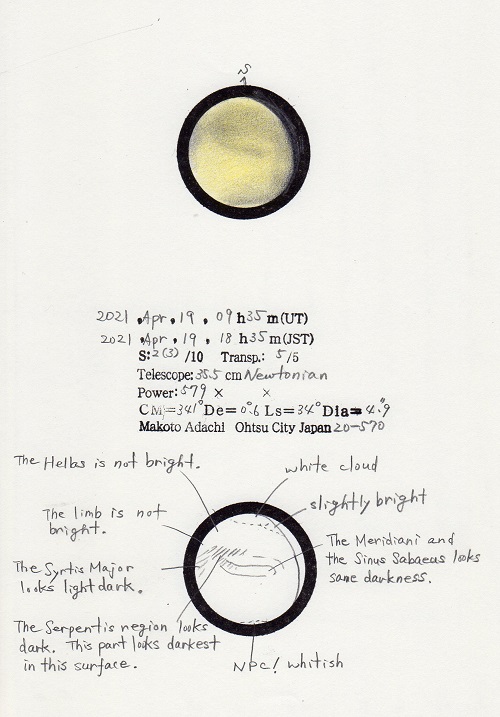 S
2021 . Apr . 19 . 09 h 35 m (UT)
2021 . Apr . 19 . 18 h 35 m (JST)
S: 2(3) /10 Transp.: 5/5
Telescope: 35.5 cm Newtonian
Power: 579 × ×
CM=341° De=0°.6 Ls=34° Dia=4".9
Makoto Adachi Ohtsu City Japan 20-570
The Hellas is not bright.
white cloud
slightly bright
The limb is not
bright.
The Meridiani and
the Sinus Sabaeus looks
same darkness.
The Syrtis Major
looks light dark.
The Serpentis region looks
dark. This part looks darkest
in this surface.
NPC! whitish